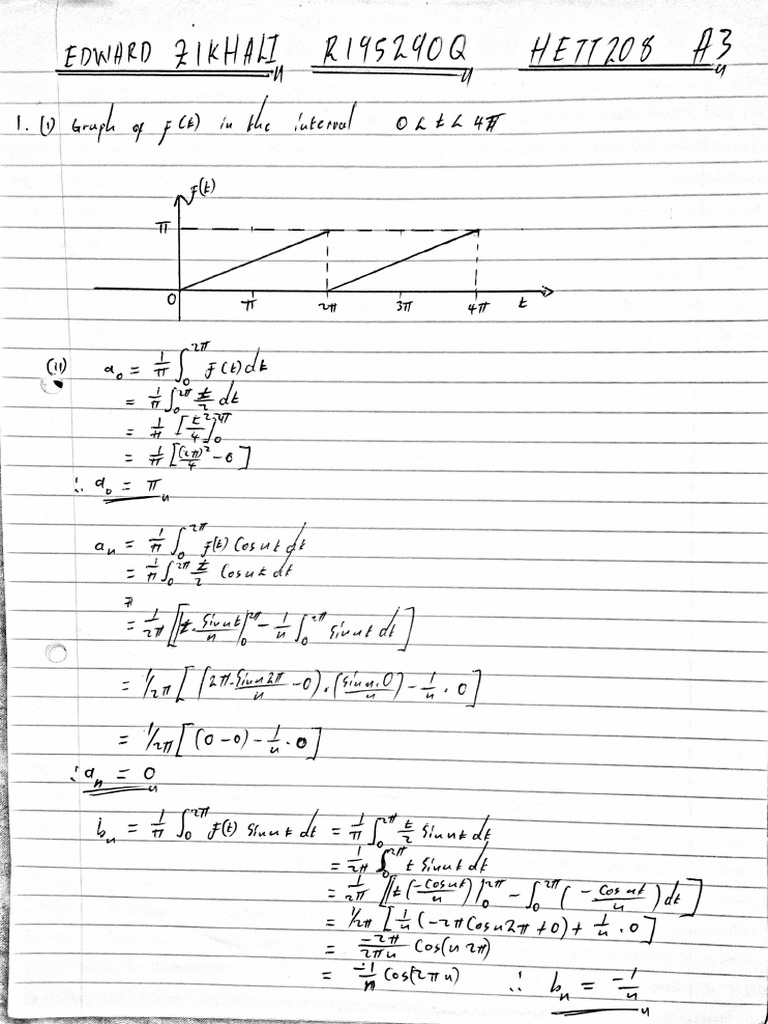 EDWARD ZIKHALI R195290Q HETT208 A3
1. (i) Graph of f(t) in the interval 0 < t < 4π
f(t)
π
0 π 2π 3π 4π t
(ii) a₀ = 1/π ∫₀^2π f(t) dt
= 1/π ∫₀^2π t/2 dt
= 1/π [t²/4]₀^2π
= 1/π [(2π)²/4 - 0]
∴ a₀ = π
aₙ = 1/π ∫₀^2π f(t) Cos nt dt
= 1/π ∫₀^2π t/2 Cos nt dt
= 1/2π [|t. Sin nt/n|₀^2π - 1/n ∫₀^2π Sin nt dt]
= 1/2π [(2π. Sin n2π/n - 0).(Sin n.0/n) - 1/n . 0]
= 1/2π [(0 - 0) - 1/n . 0]
∴ aₙ = 0
bₙ = 1/π ∫₀^2π f(t) Sin nt dt = 1/π ∫₀^2π t/2 Sin nt dt
= 1/2π ∫₀^2π t Sin nt dt
= 1/2π [|t(-Cos nt/n)|₀^2π - ∫₀^2π (-Cos nt/n) dt]
= 1/2π [1/n (-2π Cos n2π + 0) + 1/n . 0]
= -2π/2πn Cos(n2π)
= -1/n Cos(2πn) ∴ bₙ = -1/n